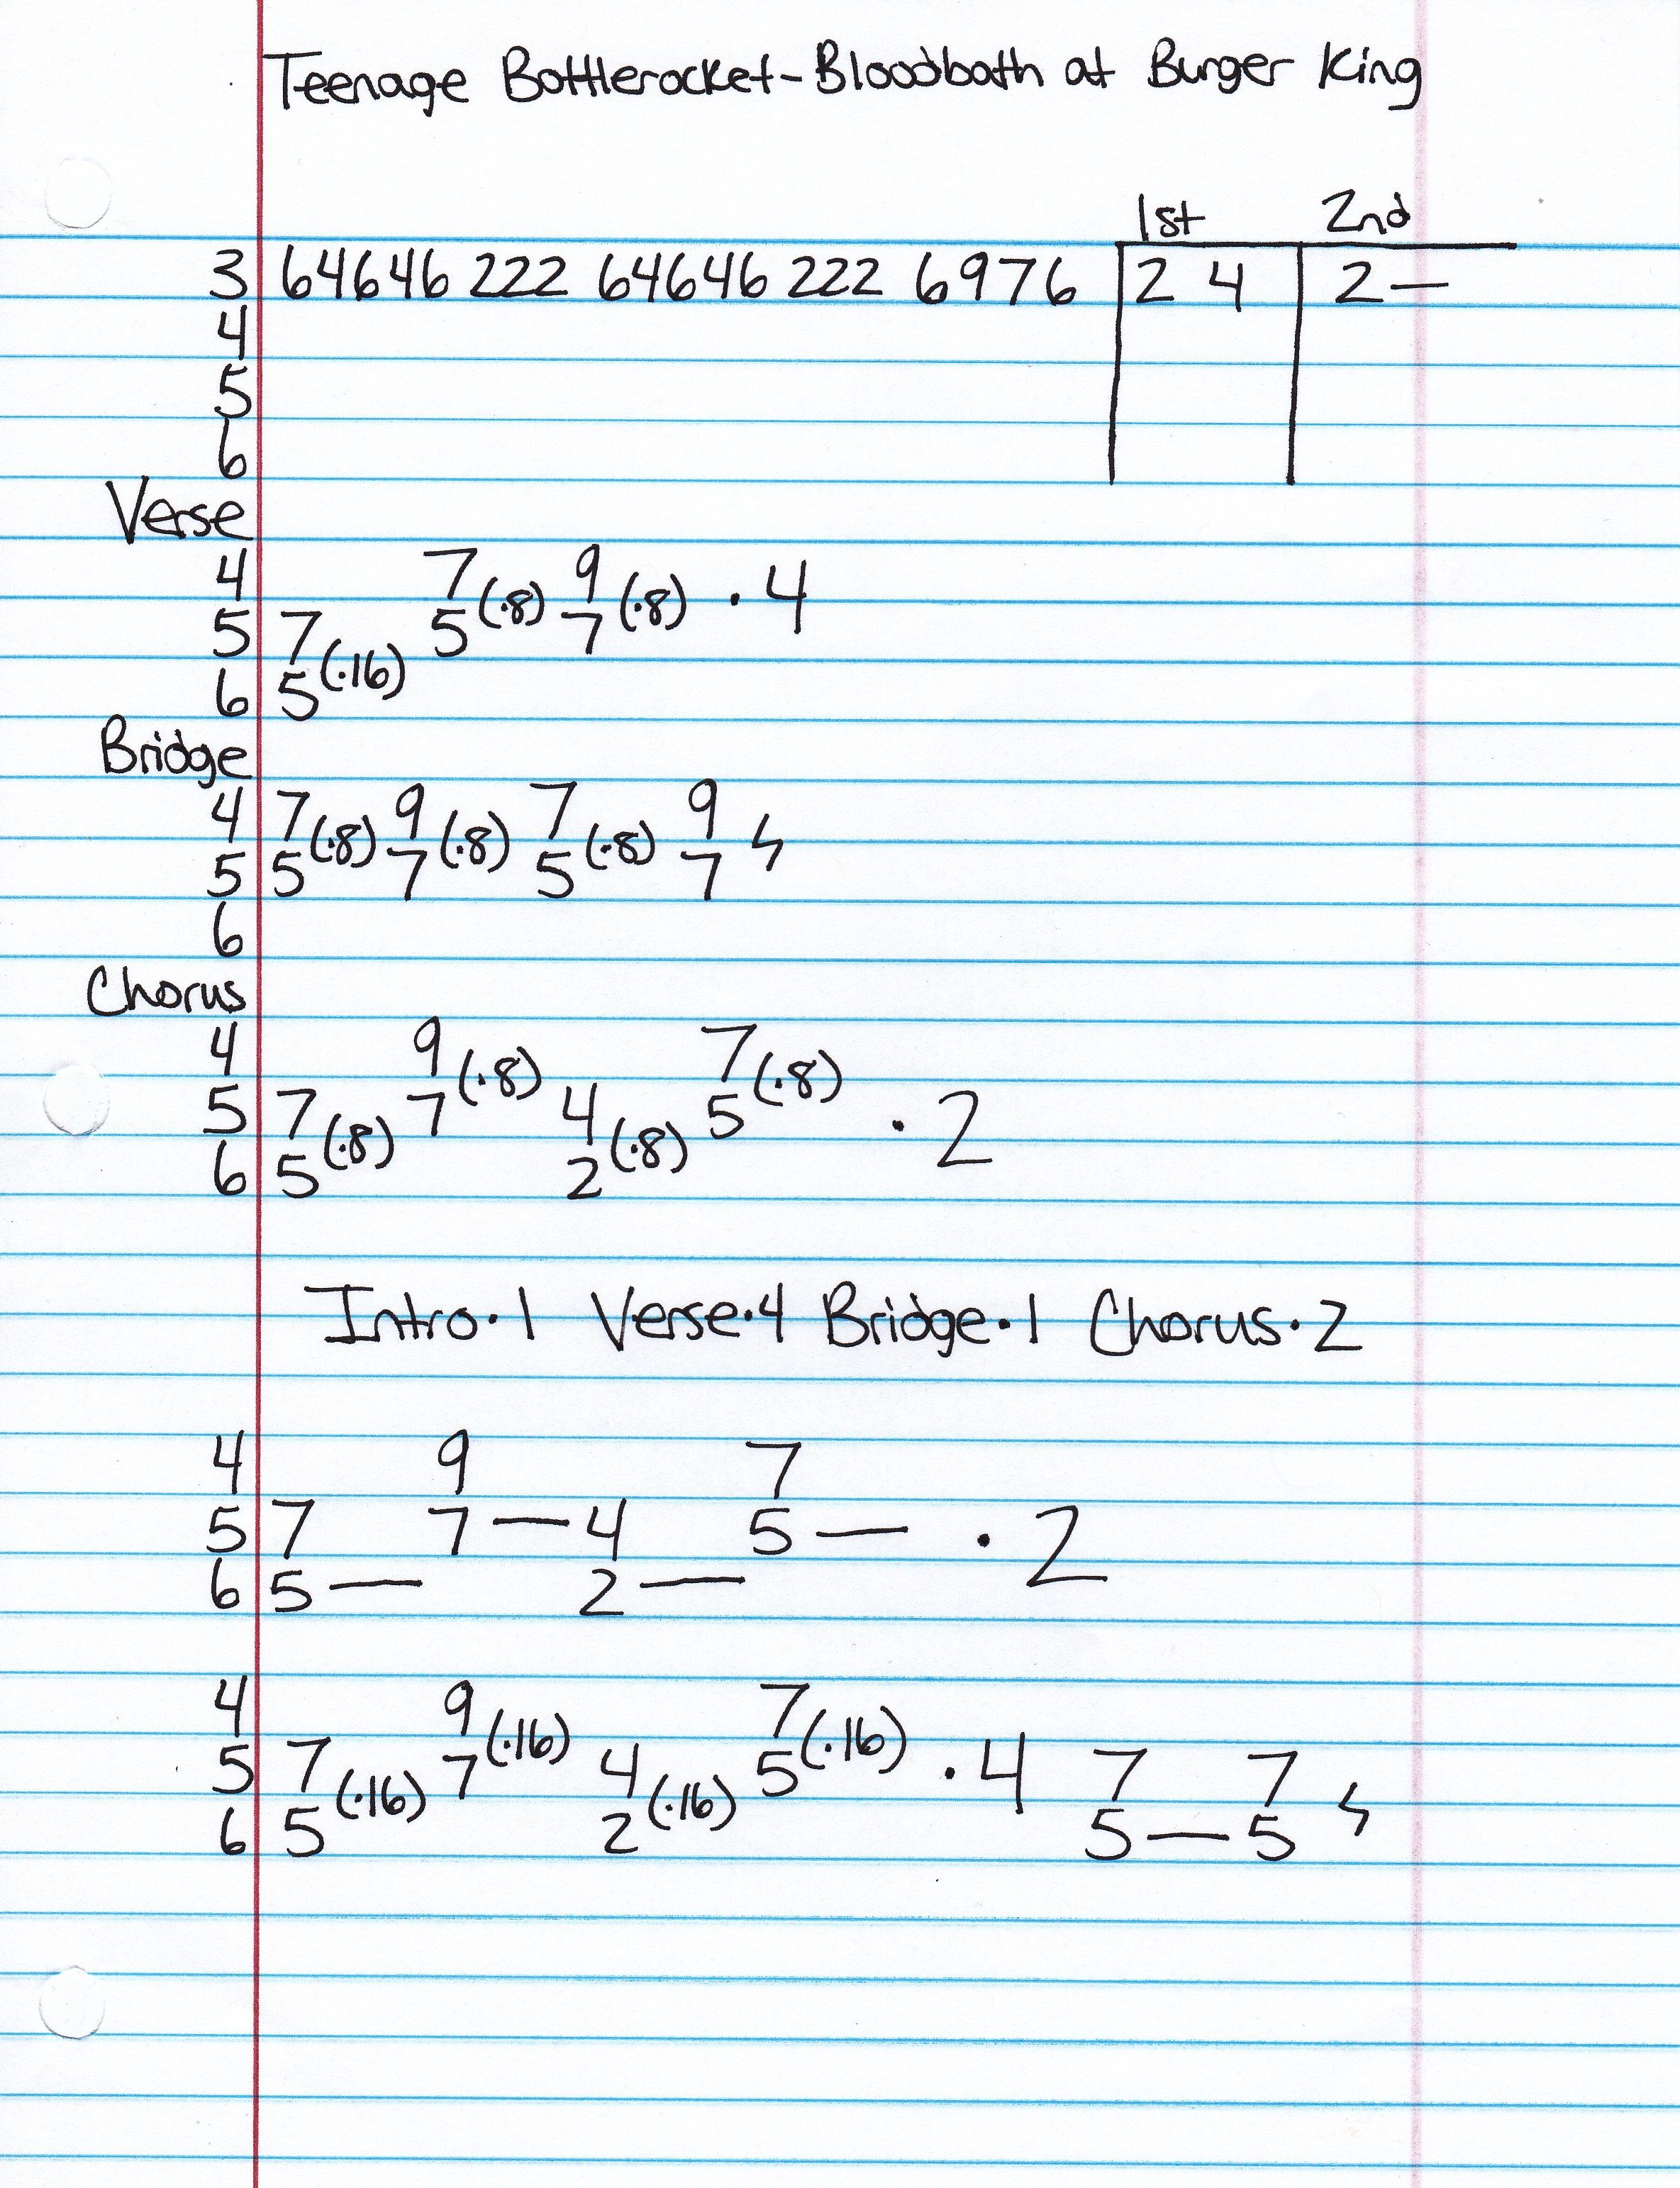 Teenage Bottlerocket-Bloodbath at Burger King
1st 2nd
3 64646 222 64646 222 6976 2 4 2—
4
5
6
Verse
4 7 9
5 7 5(·8) 7(·8) ·4
6 5(·16)
Bridge
4 7 9 7 9
5 5(·8) 7(·8) 5(·8) 7 ϟ
6
Chorus
4 9 7
5 7 7(·8) 4 5(·8) ·2
6 5(·8) 2(·8)
Intro·1 Verse·4 Bridge·1 Chorus·2
4 9 7
5 7 7— 4 5— ·2
6 5— 2—
4 9 7
5 7 7(·16) 4 5(·16) ·4 7 7
6 5(·16) 2(·16) 5—5 ϟ